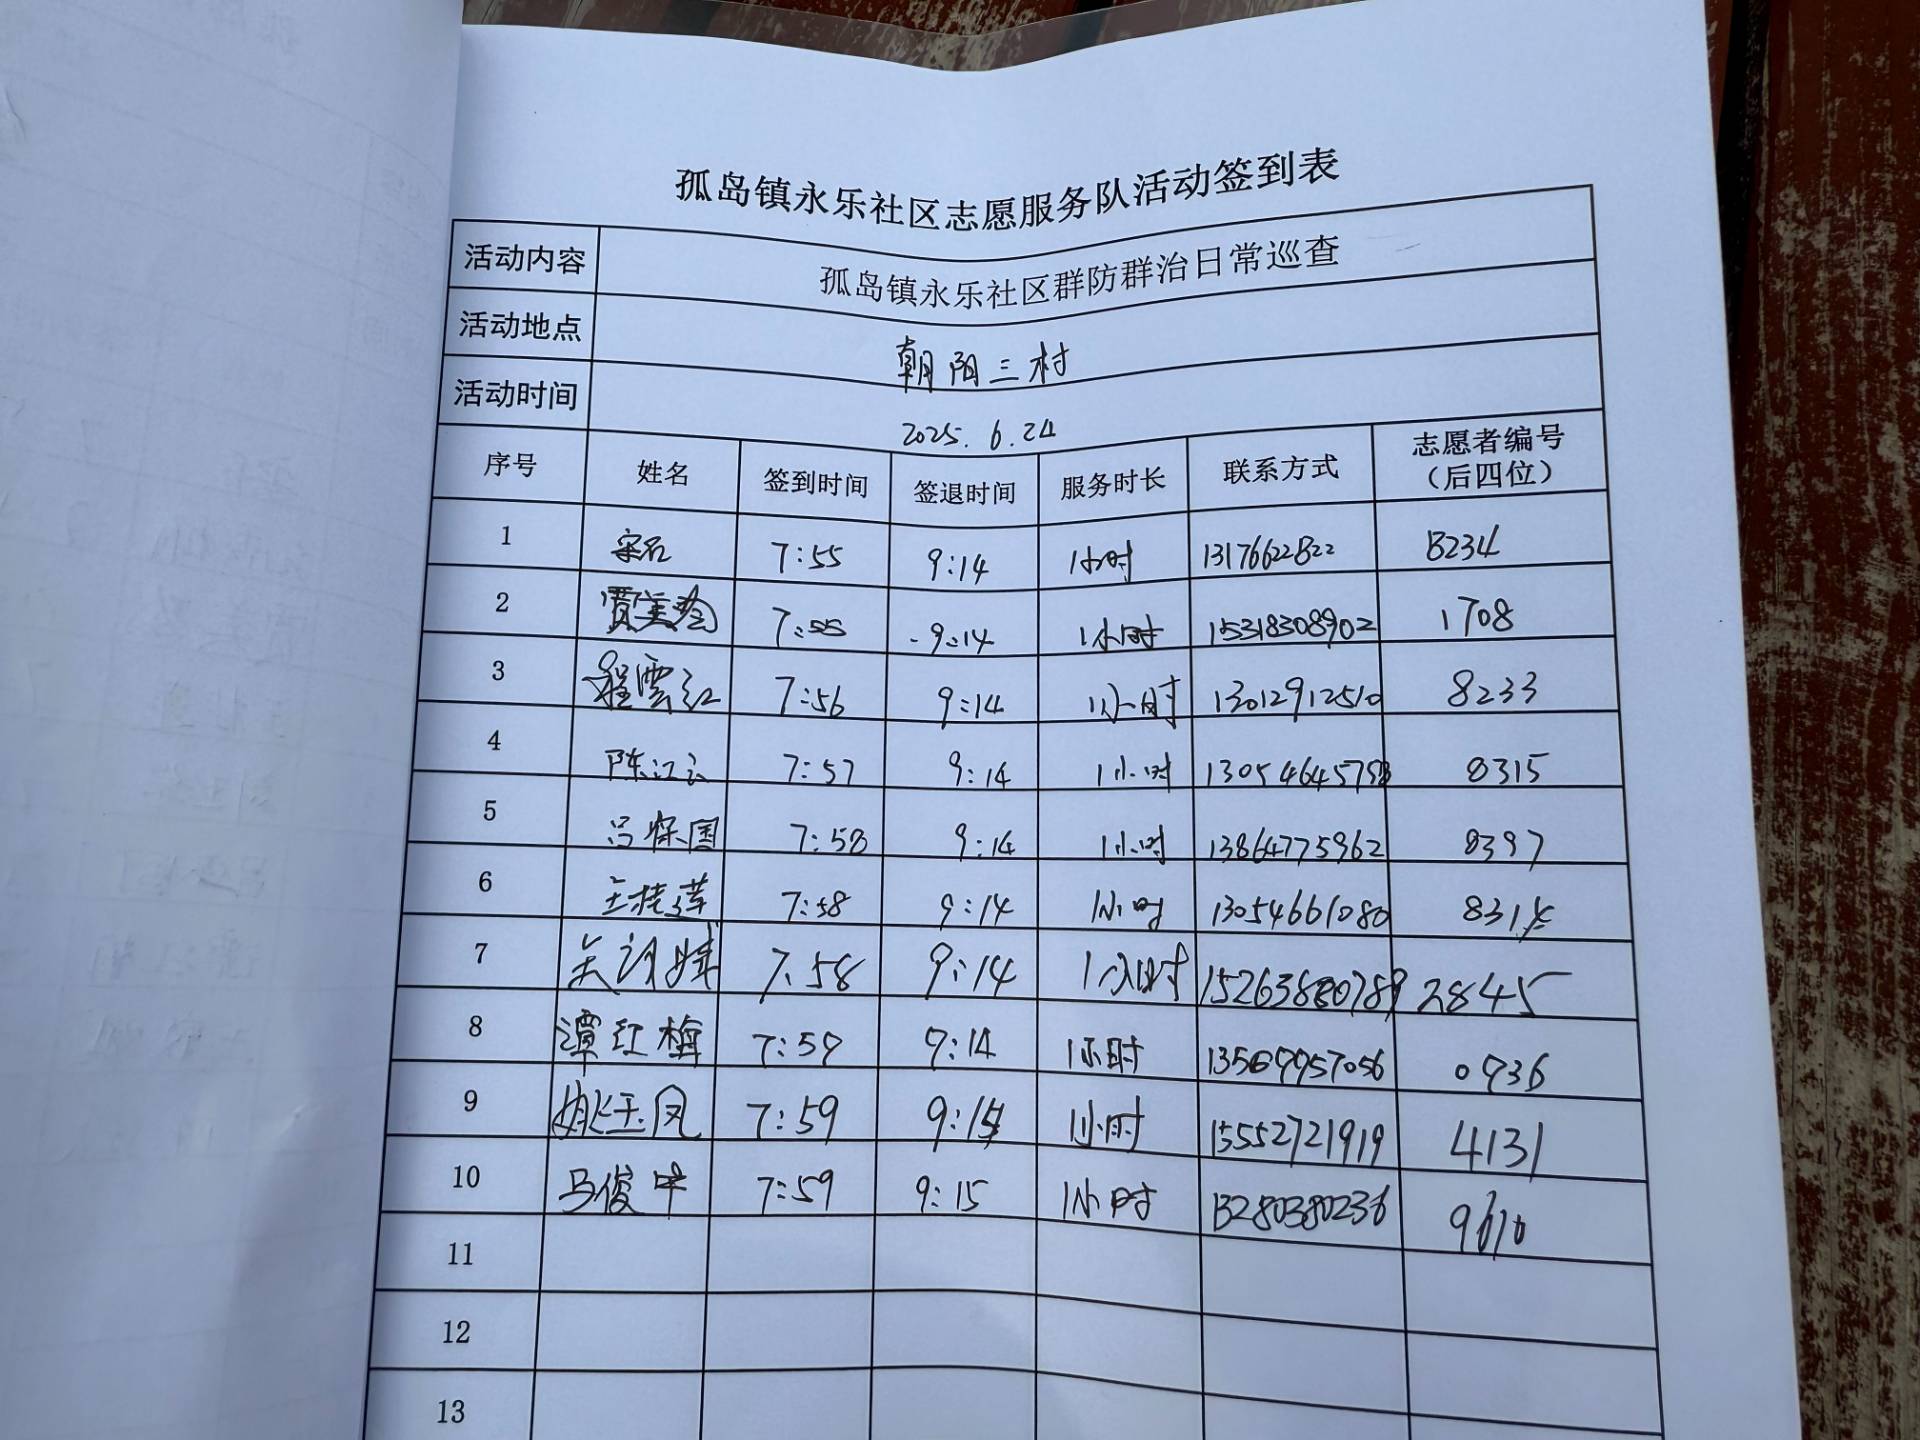 孤岛镇永乐社区志愿服务队活动签到表
活动内容 孤岛镇永乐社区群防群治日常巡查
活动地点 朝阳三村
活动时间 2025.6.24
序号 姓名 签到时间 签退时间 服务时长 联系方式 志愿者编号（后四位）
1 7:55 9:14 1小时
2 7:55 9:14 1小时 15318308902 1708
3 程雲红 7:56 9:14 1小时 13012912510 8233
4 陈江云 7:57 9:14 1小时 8315
5 吕保国 7:58 9:14 1小时 13864775962 8397
6 王桂莲 7:58 9:14 1小时 13054661080 8314
7 7:58 9:14 1小时 15263880789 2845
8 谭红梅 7:59 9:14 1小时 13569957056 0936
9 姚玉凤 7:59 9:15 1小时 15552721919 4131
10 马俊中 7:59 9:15 1小时 13280380236 9610
11
12
13